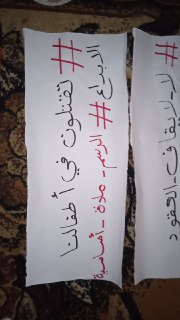 # تقتلون في أطفالنا
الابداع # الرسم - مادة - أساسية
# لا - لإيقاف - العقود